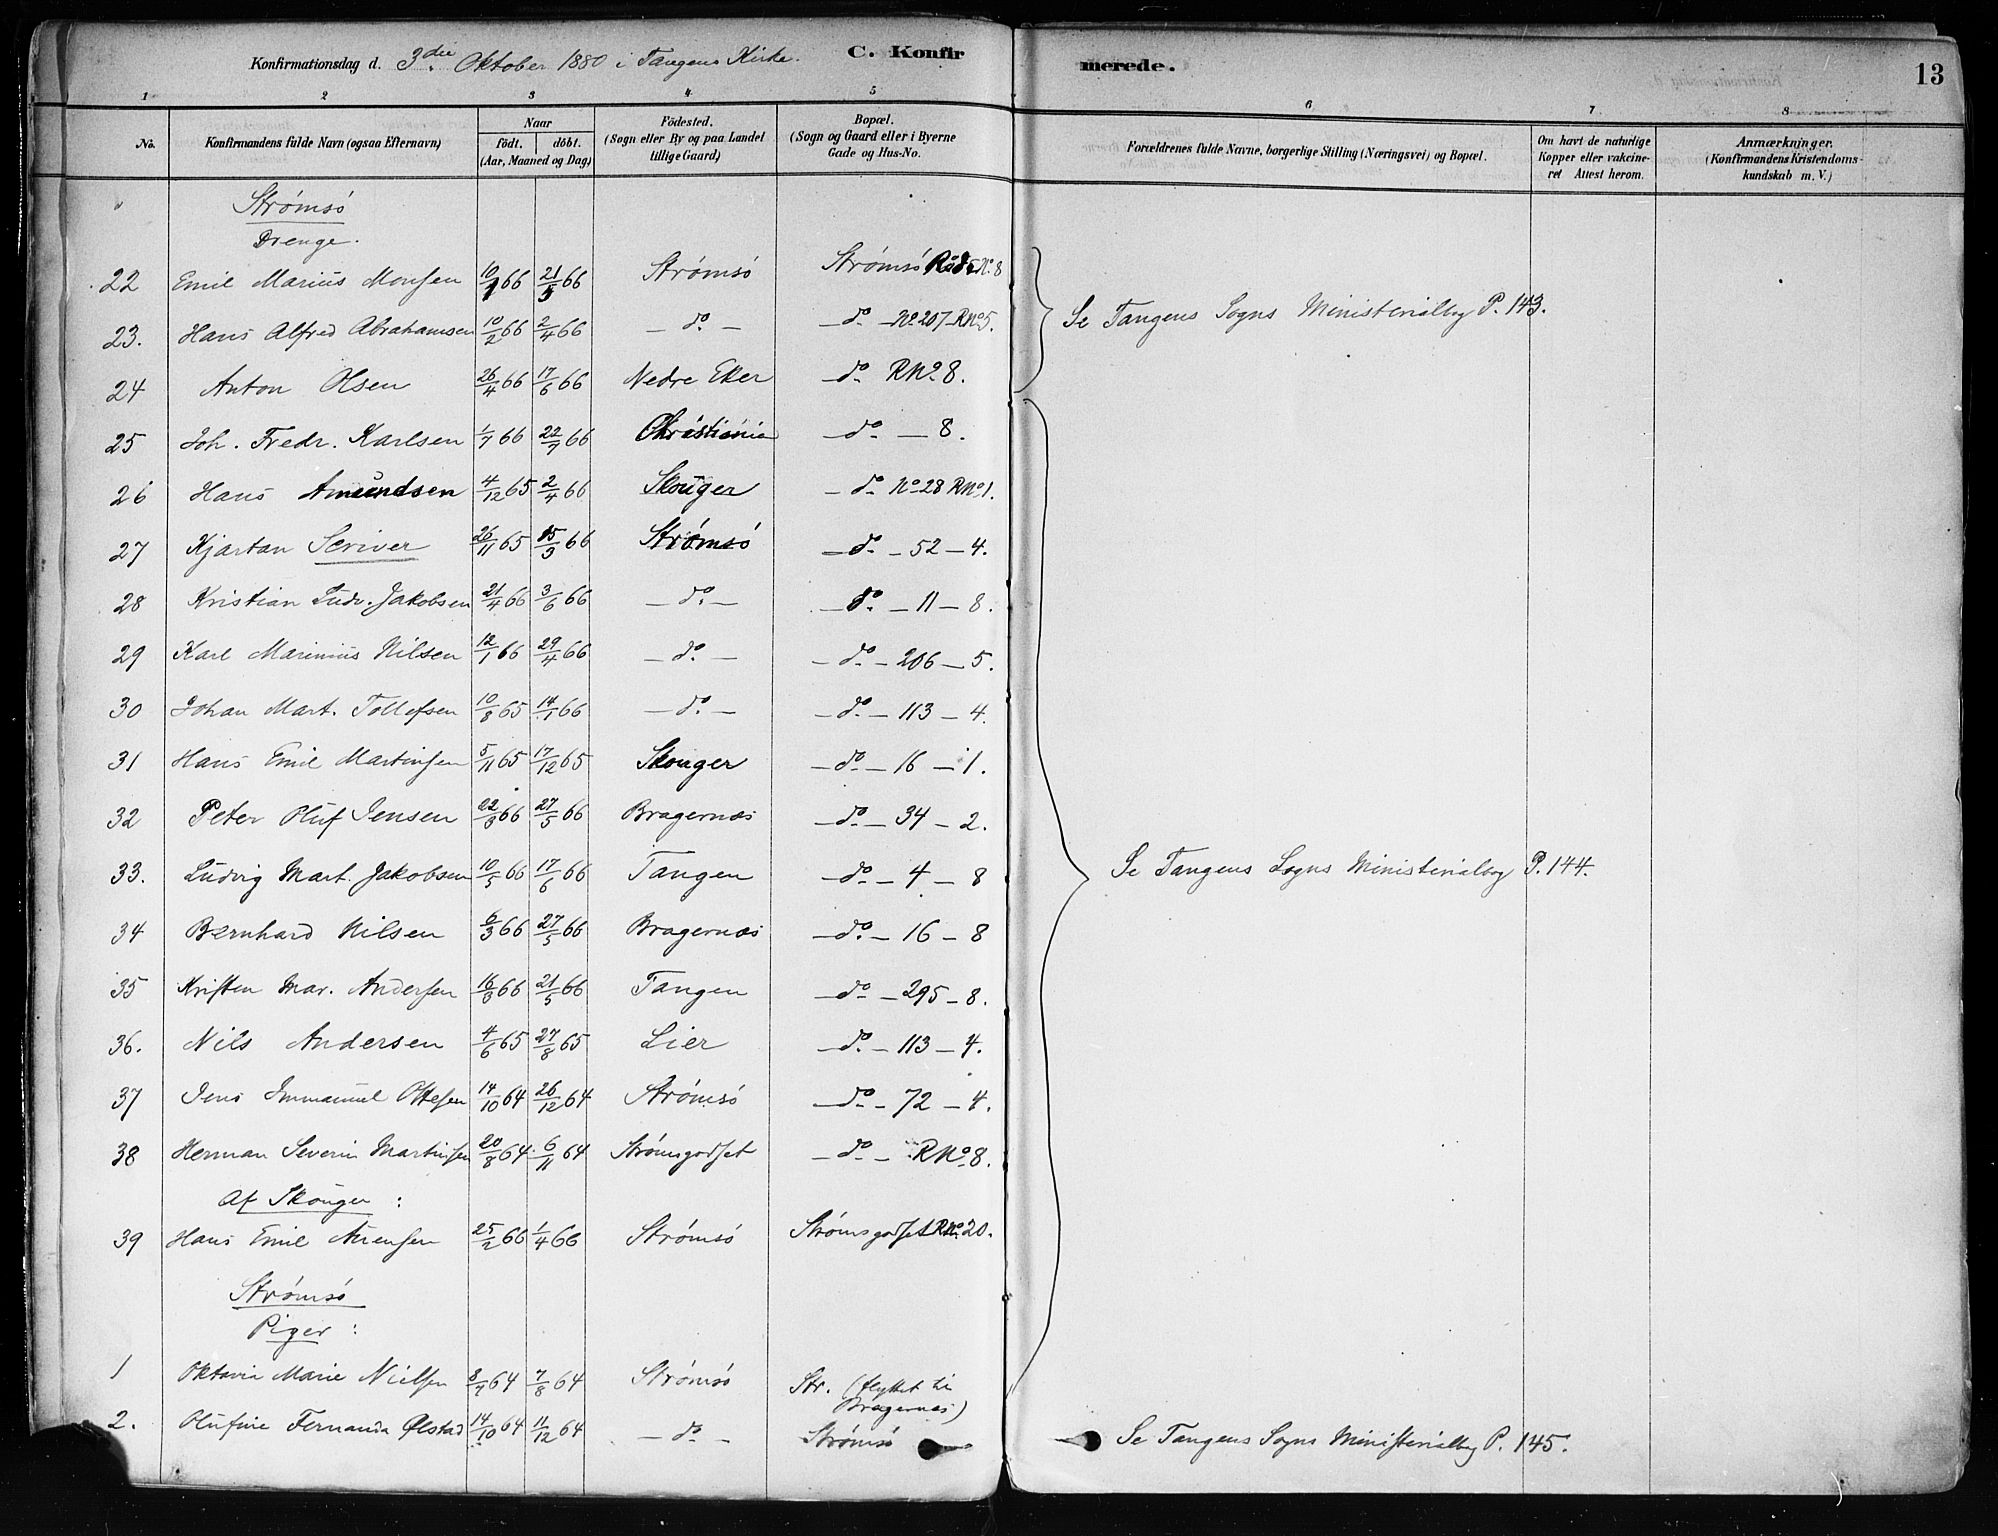 Konfirmationsdag d. 3die Oktober 1880 i Tangens Kirke. C. Konfirmerede. 13
1 2 3 4 5 6 7 8
No. Konfirmandens fulde Navn (ogsaa Efternavn) Naar födt. döbt. (Aar, Maaned og Dag) Födested. (Sogn eller By og paa Landet tillige Gaard) Bopæl. (Sogn og Gaard eller i Byerne Gade og Hus-No. Forældrenes fulde Navne, borgerlige Stilling (Næringsvei) og Bopæl. Om havt de naturlige Kopper eller vakcineret Attest herom. Anmærkninger. (Konfirmandens Kristendomskundskab m. V.)
Strømsö
Drenge.
22 Emil Marius Monsen 10/1 66 21/5 66 Strømsö Strømsö No. 8
23. Hans Alfred Abrahamsen 10/2 66 2/4 66 — do. — — do. — No. 207 — RNo. 5.
Se Tangens Sogns Ministerialbog P. 143.
24 Anton Olsen 26/4 66 17/6 66 Nedre Eker — do. RNo. 8.
25 Joh. Fredr. Karlsen 1/7 66 22/7 66 Christiania — do. — 8.
26 Hans Amundsen 4/12 65 2/4 66 Skouger — do. No. 28 RNo. 1.
27 Kjartan Scriver 26/11 65 15/3 66 Strømsö — do. — 52 — 4.
28 Kristian Ludv. Jakobsen 21/4 66 3/6 66 — do. — — do. — 11 — 8.
29 Karl Marinius Nilsen 12/1 66 29/4 66 — do. — — do. — 206 — 5.
30 Johan Mart. Tollefsen 10/8 65 14/1 66 — do. — — do. — 113 — 4.
31 Hans Emil Martinsen 5/11 65 17/12 65 Skouger — do. — 16 — 1.
32 Peter Oluf Jensen 22/3 66 27/5 66 Bragernæs — do. — 34 — 2.
33. Ludvig Mart. Jakobsen 10/5 66 17/6 66 Tangen — do. — 4 — 8
Se Tangens Sogns Ministerialbog P. 144.
34 Bernhard Nilsen 6/3 66 27/5 66 Bragernæs — do. — 16 — 8
35 Kristen Mar. Andersen 16/3 66 21/5 66 Tangen — do. — 295 — 8.
36. Nils Andersen 4/6 65 27/8 65 Lier — do. — 113 — 4.
37 Jens Immanuel Ottesen 14/10 64 26/12 64 Strømsö — do. — 72 — 4.
38 Herman Severin Martinsen 20/8 64. 6/11 64 Strømsgodset — do. — RNo. 8.
Af Skouger :
39 Hans Emil 25/2 66 1/4 66 Strømsö Strømsgodset RNo. 20.
Strømsö
Piger :
1 Oktavia Marie Nielsen 3/7 64 7/8 64 Strømsö Str. (flyttet til
Bragernæs)
2. Olufine Fernanda Ølstad 14/10 64 11/12 64 — do. — Strømsö
Se Tangens Sogns Ministerialbog P. 145.